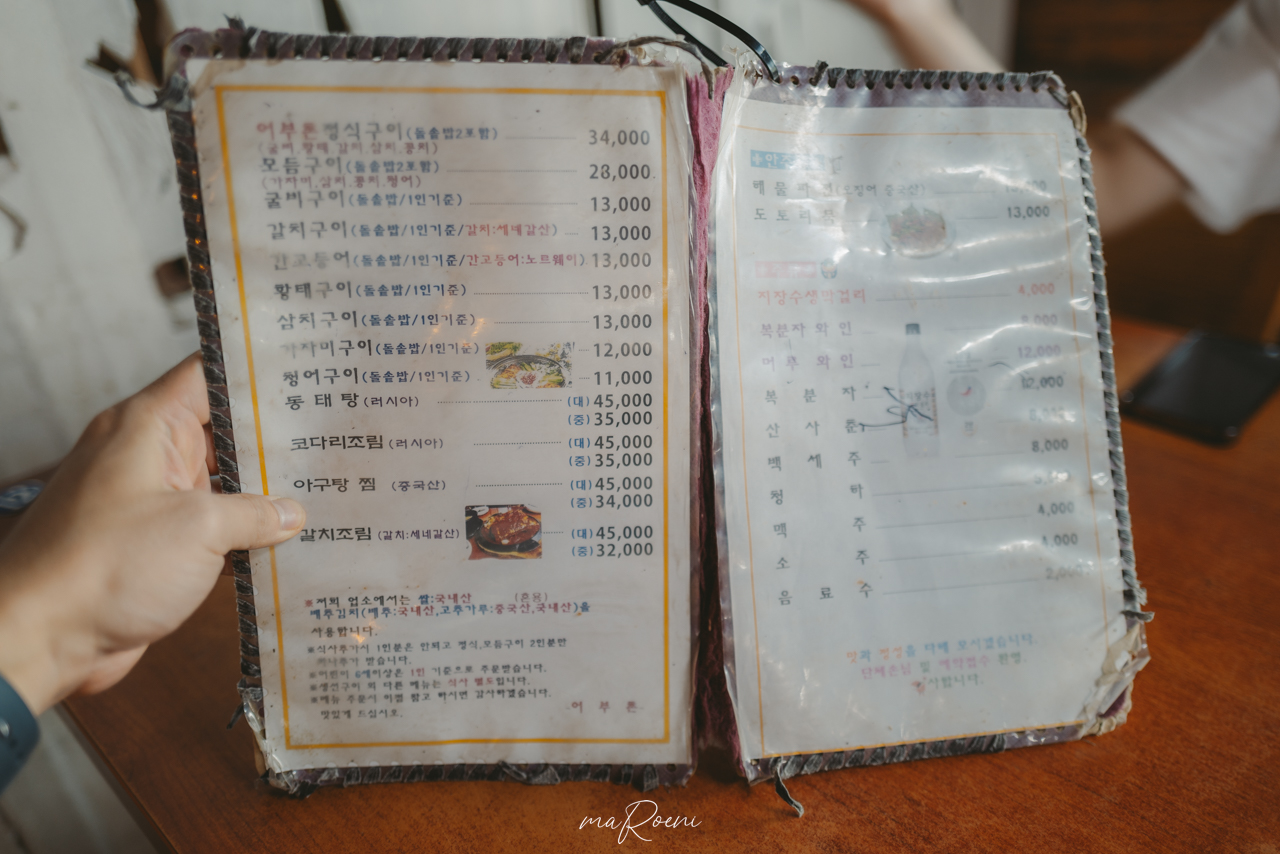 어부촌정식구이(돌솥밥2포함) 34,000
(굴비.황태.갈치.삼치.꽁치)
모듬구이(돌솥밥2포함) 28,000
(가자미.삼치.꽁치.청어)
굴비구이(돌솥밥/1인기준) 13,000
갈치구이(돌솥밥/1인기준/갈치:세네갈산) 13,000
간고등어(돌솥밥/1인기준/간고등어:노르웨이) 13,000
황태구이(돌솥밥/1인기준) 13,000
삼치구이(돌솥밥/1인기준) 13,000
가자미구이(돌솥밥/1인기준) 12,000
청어구이(돌솥밥/1인기준) 11,000
동태탕(러시아) (대)45,000
(중)35,000
코다리조림(러시아) (대)45,000
(중)35,000
아구탕 찜 (중국산) (대)45,000
(중)34,000
갈치조림(갈치:세네갈산) (대)45,000
(중)32,000
※저희 업소에서는 쌀:국내산 (혼용)
배추김치(배추:국내산,고추가루:중국산,국내산)을
사용합니다.
※식사추가시 1인분은 안되고 정식,모듬구이 2인분만
받습니다.
※어린이 6세이상은 1인 기준으로 주문받습니다.
※생선구이 외 다른 메뉴는 식사 별도입니다.
※메뉴 주문시 이점 참고 하시면 감사하겠습니다.
맛있게 드십시오.
어부촌
해물파전(오징어 중국산)
도토리묵 13,000
지장수생막걸리 4,000
복분자 와인
머루 와인 12,000
복분자 12,000
산사춘
백세주 8,000
청하
맥주 4,000
소주 4,000
음료수
맛과 정성을 다해 모시겠습니다.
단체손님 및 예약접수 환영.
감사합니다.
maRoeni